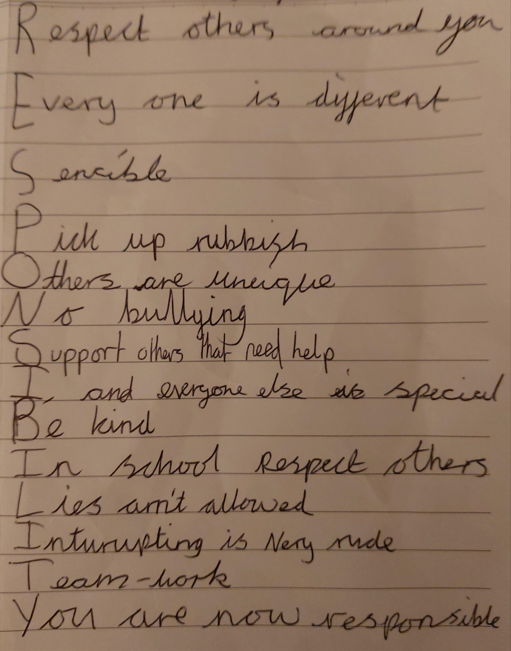 Respect others around you
Every one is different
Sencible
Pick up rubbish
Others are uneique
No bullying
Support others that need help
I, and everyone else is special
Be kind
In school Respect others
Lies arn't allowed
Inturupting is Very rude
Team-work
You are now responsible